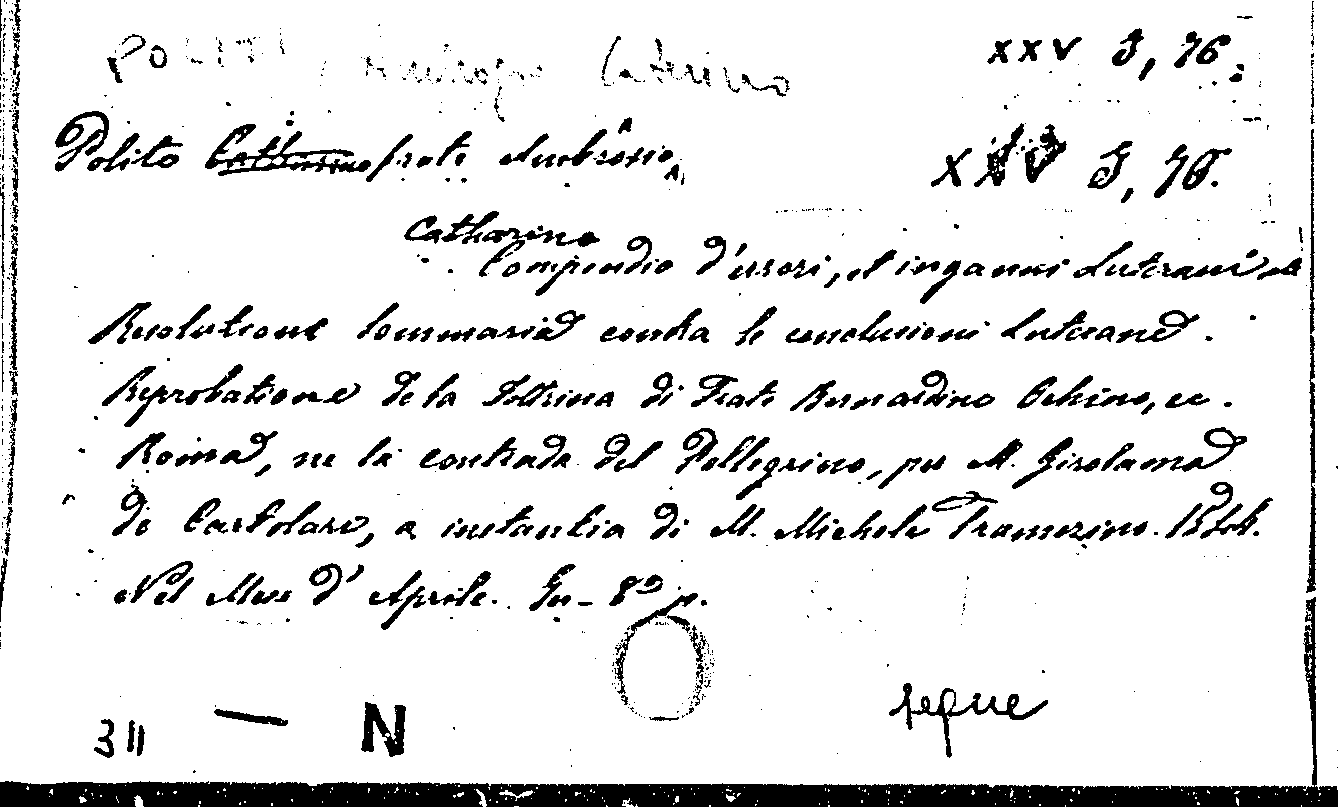 POLITI, Ambrogio Caterino
XXV J, 76.
Polito Catherino frate Ambrosio,
XXV J, 76.
Catharino
Compendio d'errori, et inganni Luterani etc
Resolutione sommaria contra le conclusioni Luterane.
Reprobatione de la dottrina di Frate Bernardino Ochino, ec.
Roma, ne la contrada del Pellegrino, per M. Girolama
de Cartolari, a instantia di M. Michele Tramezino. 1544.
Nel Mese d'Aprile. In-8º p.
segue
311 — N